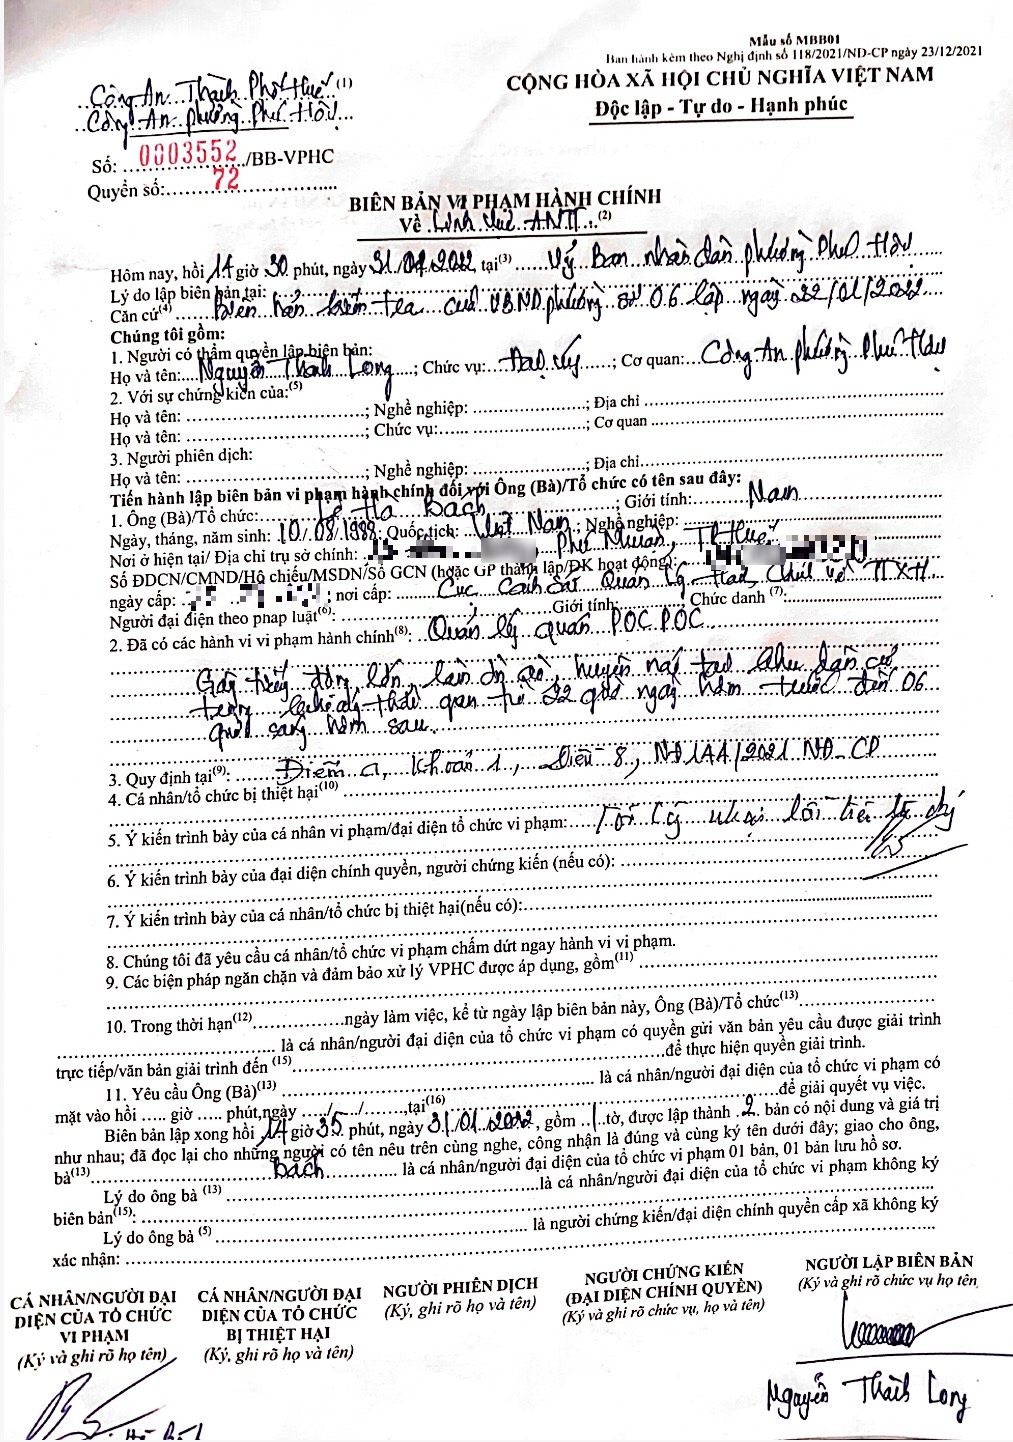 Mẫu số MBB01
Ban hành kèm theo Nghị định số 118/2021/NĐ-CP ngày 23/12/2021
CỘNG HÒA XÃ HỘI CHỦ NGHĨA VIỆT NAM
Độc lập - Tự do - Hạnh phúc
Công An Thành Phố Huế (1)
Công An phường Phú Hội
Số: 0003552/BB-VPHC
Quyển số: 72
BIÊN BẢN VI PHẠM HÀNH CHÍNH
Về Lĩnh vực ANTT (2)
Hôm nay, hồi 14 giờ 30 phút, ngày 31/01/2022, tại(3) Uỷ Ban nhân dân phường Phú Hội
Lý do lập biên bản tại:
Căn cứ(4) Biên bản kiểm tra của UBND phường số 06 lập ngày 22/01/2022
Chúng tôi gồm:
1. Người có thẩm quyền lập biên bản:
Họ và tên: Nguyễn Thành Long; Chức vụ: Đại úy; Cơ quan: Công An phường Phú Hội
2. Với sự chứng kiến của:(5)
Họ và tên: ; Nghề nghiệp: ; Địa chỉ
Họ và tên: ; Chức vụ: ; Cơ quan
3. Người phiên dịch:
Họ và tên: ; Nghề nghiệp: ; Địa chỉ
Tiến hành lập biên bản vi phạm hành chính đối với Ông (Bà)/Tổ chức có tên sau đây:
1. Ông (Bà)/Tổ chức: Lê Hà Bách; Giới tính: Nam
Ngày, tháng, năm sinh: 10/08/1988; Quốc tịch: Việt Nam; Nghề nghiệp:
Nơi ở hiện tại/ Địa chỉ trụ sở chính: , Phú Nhuận, TP Huế
Số ĐDCN/CMND/Hộ chiếu/MSDN/Số GCN (hoặc GP thành lập/ĐK hoạt động):
ngày cấp: ; nơi cấp: Cục Cảnh Sát Quản lý Hành Chính về TTXH
Người đại diện theo pháp luật(6): ; Giới tính: Chức danh (7):
2. Đã có các hành vi vi phạm hành chính(8): Quản lý quán POC POC
Gây tiếng động lớn, làm ồn ào, huyên náo tại khu dân cư
trong khoảng thời gian từ 22 giờ ngày hôm trước đến 06
giờ sáng hôm sau
3. Quy định tại(9): Điểm a, khoản 1, Điều 8, NĐ 144/2021 NĐ-CP
4. Cá nhân/tổ chức bị thiệt hại(10)
5. Ý kiến trình bày của cá nhân vi phạm/đại diện tổ chức vi phạm: Tôi
6. Ý kiến trình bày của đại diện chính quyền, người chứng kiến (nếu có):
7. Ý kiến trình bày của cá nhân/tổ chức bị thiệt hại(nếu có):
8. Chúng tôi đã yêu cầu cá nhân/tổ chức vi phạm chấm dứt ngay hành vi vi phạm.
9. Các biện pháp ngăn chặn và đảm bảo xử lý VPHC được áp dụng, gồm(11)
10. Trong thời hạn(12) ngày làm việc, kể từ ngày lập biên bản này, Ông (Bà)/Tổ chức(13)
là cá nhân/người đại diện của tổ chức vi phạm có quyền gửi văn bản yêu cầu được giải trình
trực tiếp/văn bản giải trình đến (15) để thực hiện quyền giải trình.
11. Yêu cầu Ông (Bà)(13) là cá nhân/người đại diện của tổ chức vi phạm có
mặt vào hồi ..... giờ ..... phút,ngày ...../...../.......,tại(16) để giải quyết vụ việc.
Biên bản lập xong hồi 14 giờ 35 phút, ngày 31/01/2022, gồm 1 tờ, được lập thành 2 bản có nội dung và giá trị
như nhau; đã đọc lại cho những người có tên nêu trên cùng nghe, công nhận là đúng và cùng ký tên dưới đây; giao cho ông,
bà(13) Bách là cá nhân/người đại diện của tổ chức vi phạm 01 bản, 01 bản lưu hồ sơ.
Lý do ông bà (13) là cá nhân/người đại diện của tổ chức vi phạm không ký
biên bản(15):
Lý do ông bà (5) là người chứng kiến/đại diện chính quyền cấp xã không ký
xác nhận:
CÁ NHÂN/NGƯỜI ĐẠI DIỆN CỦA TỔ CHỨC VI PHẠM
(Ký và ghi rõ họ tên)
CÁ NHÂN/NGƯỜI ĐẠI DIỆN CỦA TỔ CHỨC BỊ THIỆT HẠI
(Ký, ghi rõ họ và tên)
NGƯỜI PHIÊN DỊCH
(Ký, ghi rõ họ và tên)
NGƯỜI CHỨNG KIẾN
(ĐẠI DIỆN CHÍNH QUYỀN)
(Ký và ghi rõ chức vụ, họ và tên)
NGƯỜI LẬP BIÊN BẢN
(Ký và ghi rõ chức vụ họ tên
Nguyễn Thành Long